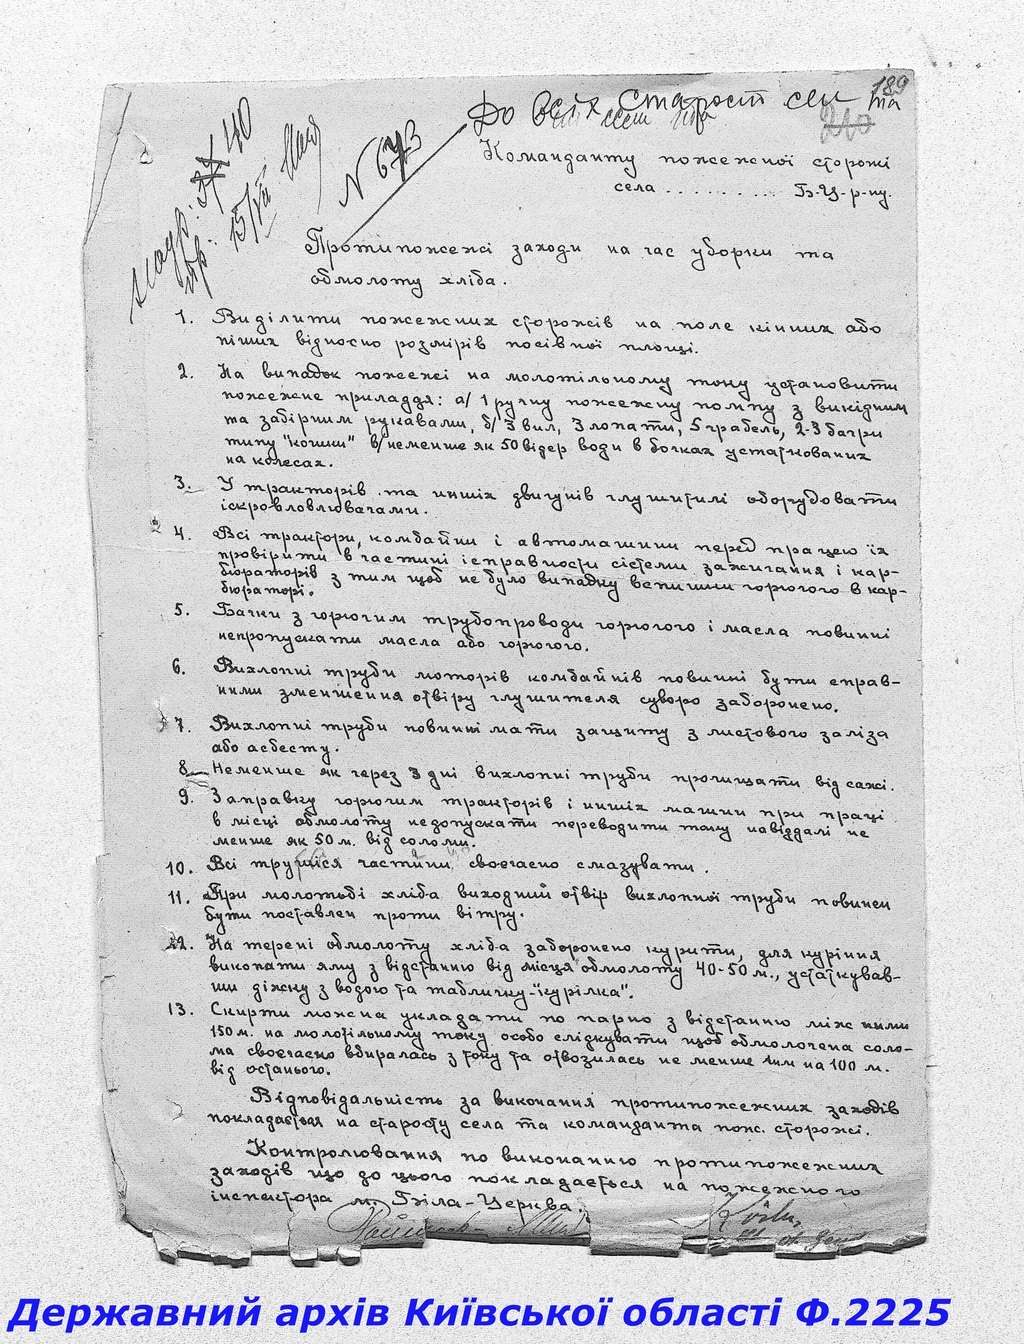 189
До всіх старост сел та
240
N 673
Коменданту пожежної сторожі
села .......... Б-Ц-р-ну.
Протипожежі заходи на час уборки та
обмолоту хліба.
1. Виділити пожежних сторожів на поле кінних або
піших відносно розмірів посівної площі.
2. На випадок пожежі на молотільному току установити
пожежне приладдя: а/ 1 ручну пожежну помпу з викідним
та забірним рукавами, б/ 3 вил, 3 лопати, 5 грабель, 2-3 багри
типу "кошки" в/ неменше як 50 відер води в бочках устаткованих
на колесах.
3. У тракторів та инших двигунів глушителі оборудовати
іскровловлювачами.
4. Всі трактори, комбайни і автомашини перед працею їх
провірити в частині ісправности сістеми зажигання і кар-
бюраторів з тим щоб не було випадку вспишки горючого в кар-
бюраторі.
5. Бачки з горючим трубопроводи горючого і масла повинні
непропускати масла або горючого.
6. Вихлопні труби моторів комбайнів повинні бути справ-
ними зменшення отвіру глушителя суворо заборонено.
7. Вихлопні труби повинні мати защиту з листового заліза
або асбесту.
8. Неменше як через 3 дні вихлопні труби прочищати від сажі.
9. Заправку горючим тракторів і инших машин при праці
в місці обмолоту недопускати переводити тону навіддалі не
менше як 50 м. від соломи.
10. Всі трущіся частини своєчасно смазувати.
11. При молотьбі хліба виходний отвір вихлопної труби повинен
бути поставлен проти вітру.
12. На терені обмолоту хліба заборонено курити, для куріння
викопати яму з відстанню від місця обмолоту 40-50 м., устаткував-
ши діжку з водою та табличку-"курілка".
13. Скирти можна укладати по парно з відстанню між ними
150 м. на молотільному току особо слідкувати щоб обмолочена соло-
ма своєчасно вбиралась з току та отвозилась не менше чим на 100 м.
від останього.
Відповідальність за виконання протипожежних заходів
покладається на старосту села та команданта пож. сторожі.
Контролювання по виконанню протипожежних
заходів що до цього покладається на пожежного
інспектора м. Біла-Церква.
Державний архів Київської області Ф.2225